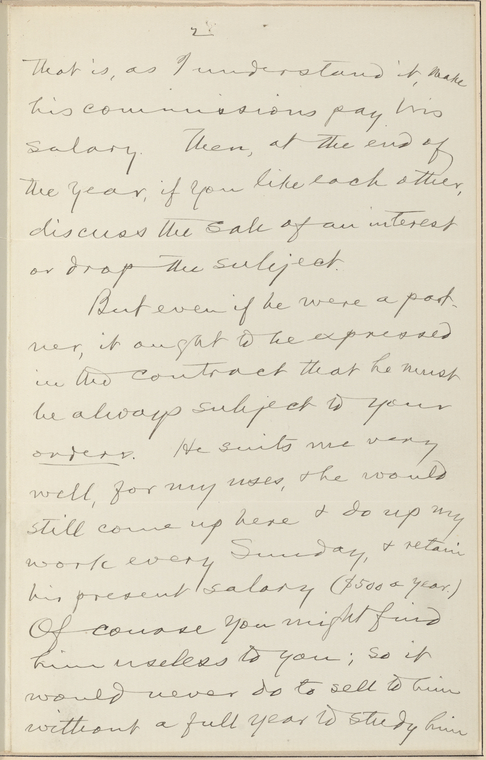 2
that is, as I understand it, make
his commissions pay his
salary. Then, at the end of
the year, if you like each other,
discuss the sale of an interest
or drop the subject.
But even if he were a part-
ner, it ought to be expressed
in the contract that he must
be always subject to your
orders. He suits me very
well, for my uses, & he would
still come up here & do up my
work every Sunday, & retain
his present salary ($500 a year.)
Of course you might find
him useless to you; so it
would never do to sell to him
without a full year to study him